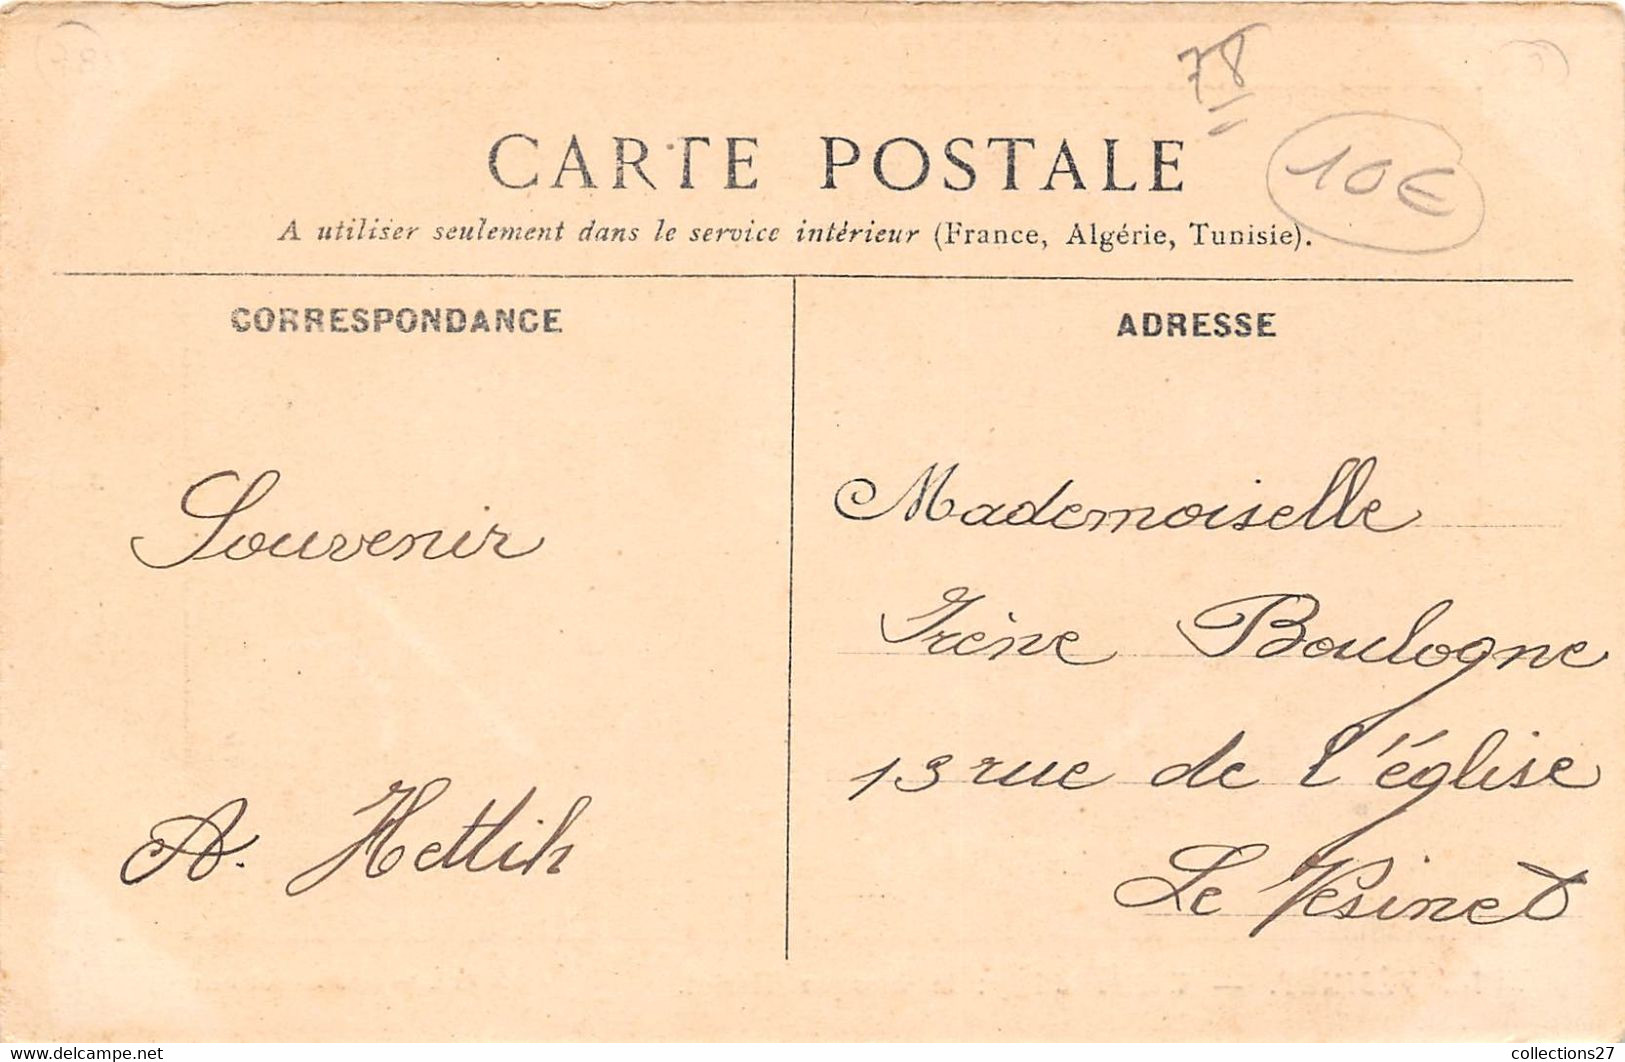 78
CARTE POSTALE
10€
A utiliser seulement dans le service intérieur (France, Algérie, Tunisie).
CORRESPONDANCE
ADRESSE
Souvenir
A. Hettih
Mademoiselle
Irène Boulogne
13 rue de l'église
Le Vesinet
www.delcampe.net
collections27